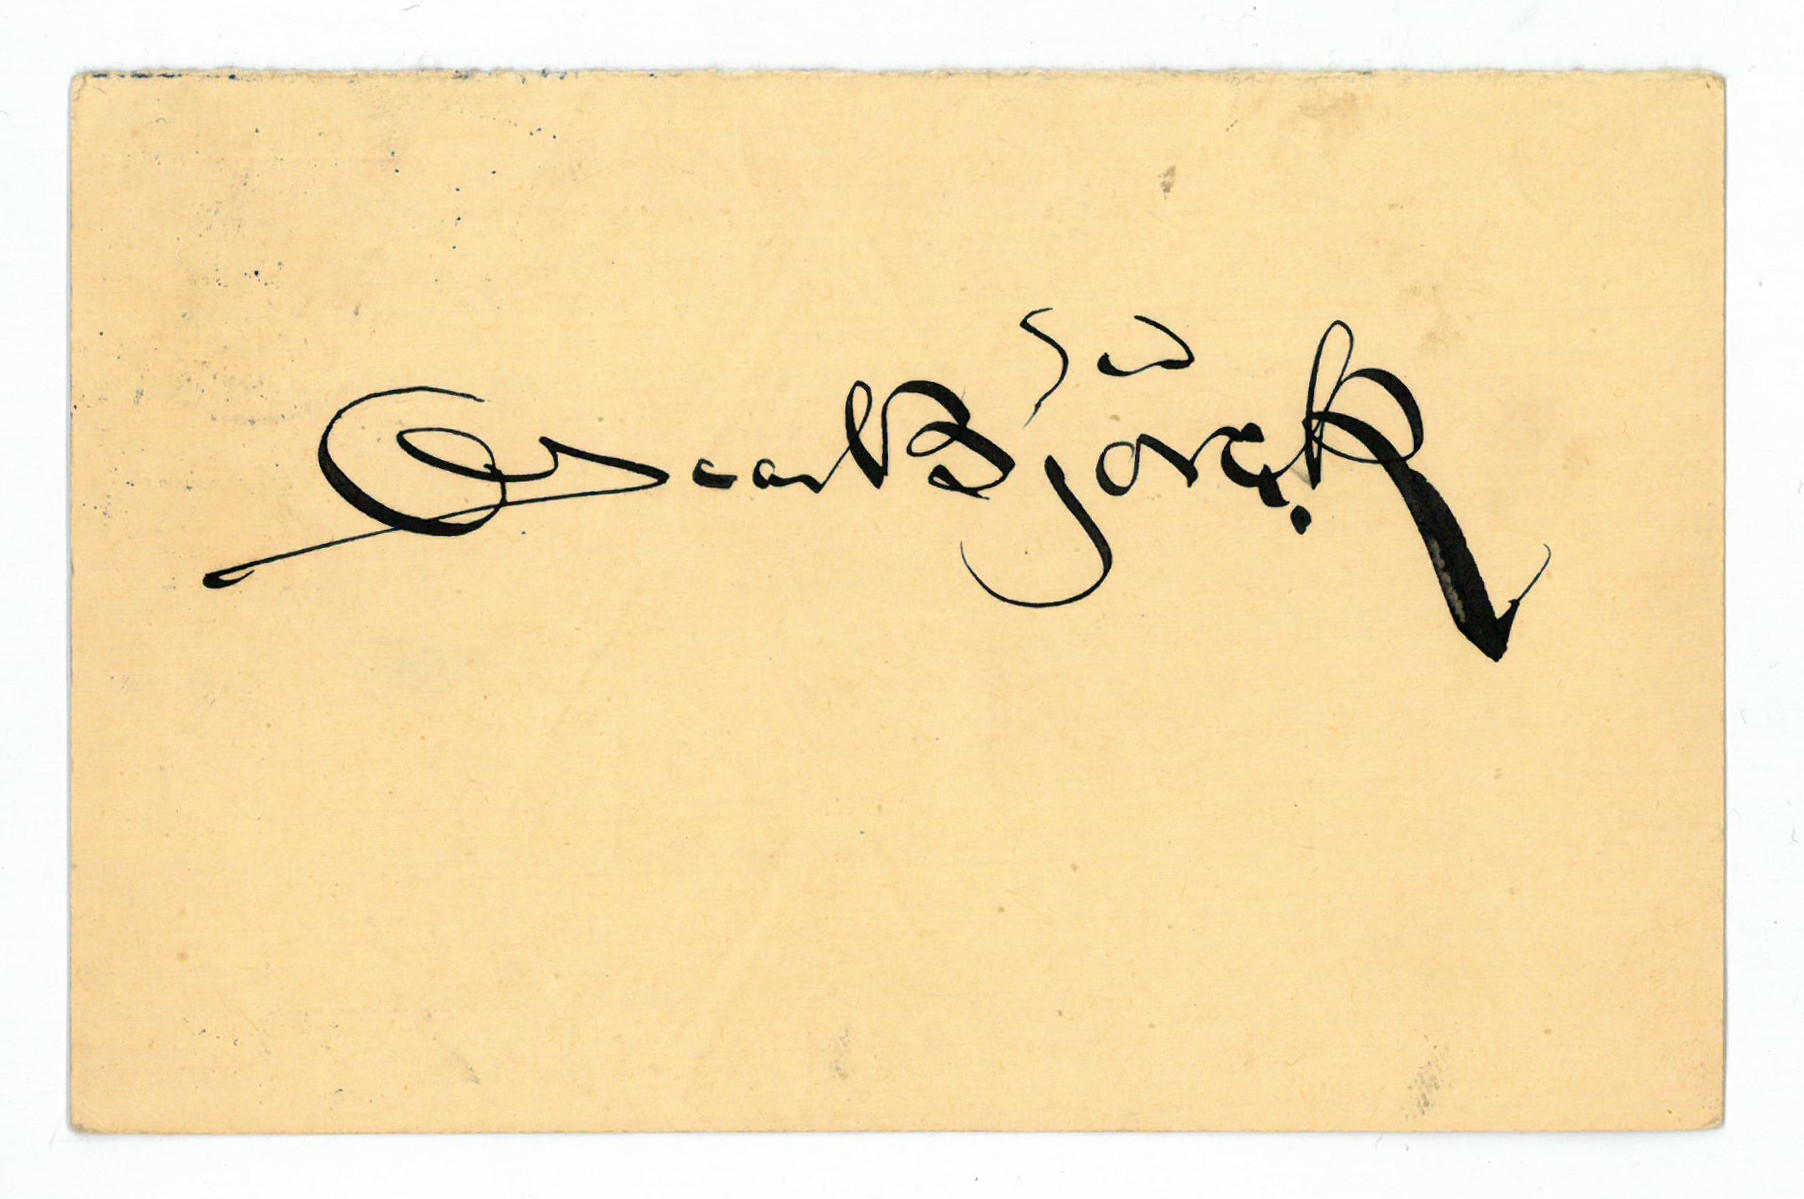 Oscar Björck